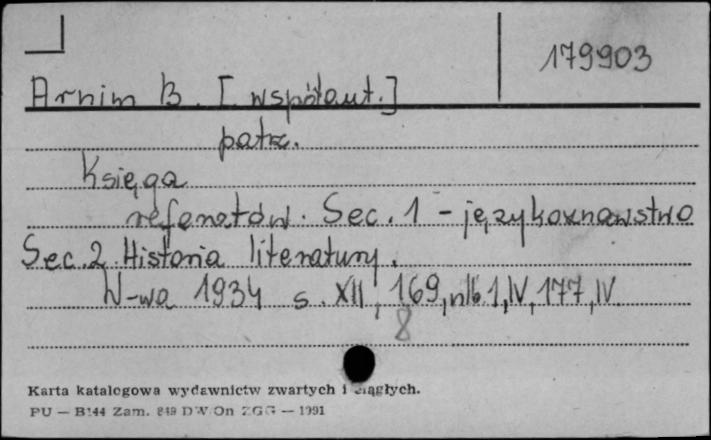 179903
Arnim B. [współaut.]
patrz.
Księga
referatów. Sec. 1 - językoznawstwo
Sec. 2 Historia literatury.
W-wa 1934 s. XII, 169, nlb. 1, IV, 177, IV
8
Karta katalogowa wydawnictw zwartych i ciągłych.
PU — B144 Zam. 849 DW/On ZGG — 1991